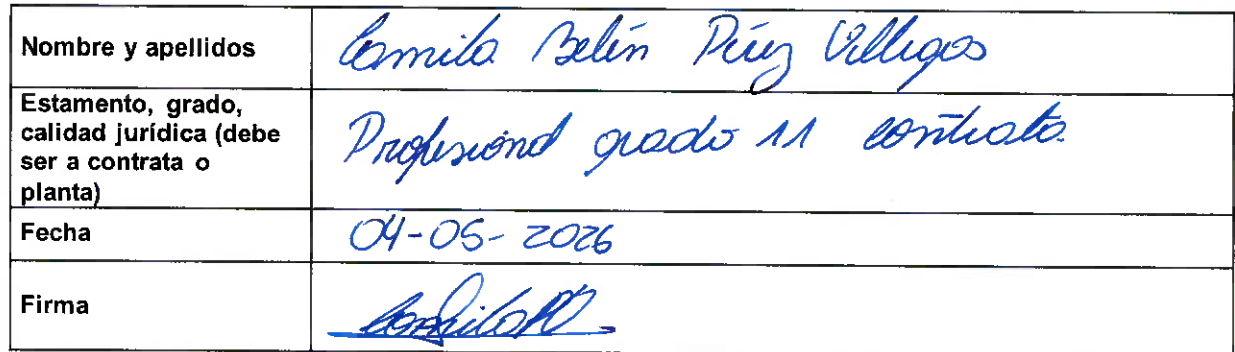 Nombre y apellidos
Camila Belén Pérez Villegas
Estamento, grado,
calidad jurídica (debe
ser a contrata o
planta)
Profesional grado 11 contrata
Fecha
04-05-2026
Firma
CamilaPV